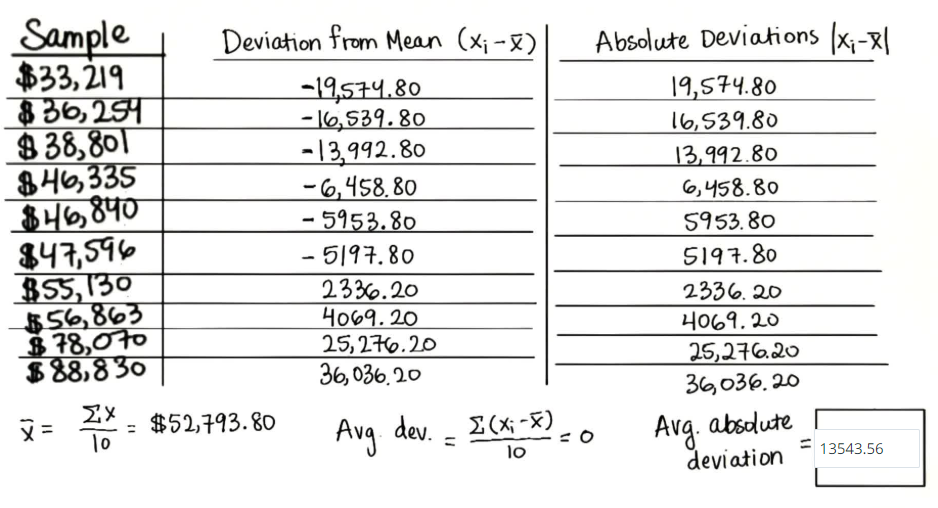 Sample Deviation from Mean (xᵢ-x̄) Absolute Deviations |xᵢ-x̄|
$33,219 -19,574.80 19,574.80
$36,254 -16,539.80 16,539.80
$38,801 -13,992.80 13,992.80
$46,335 -6,458.80 6,458.80
$46,840 -5953.80 5953.80
$47,596 -5197.80 5197.80
$55,130 2336.20 2336.20
$56,863 4069.20 4069.20
$78,070 25,276.20 25,276.20
$88,830 36,036.20 36,036.20
x̄ = Σx/10 = $52,793.80 Avg. dev. = Σ(xᵢ-x̄)/10 = 0 Avg. absolute deviation = 13543.56